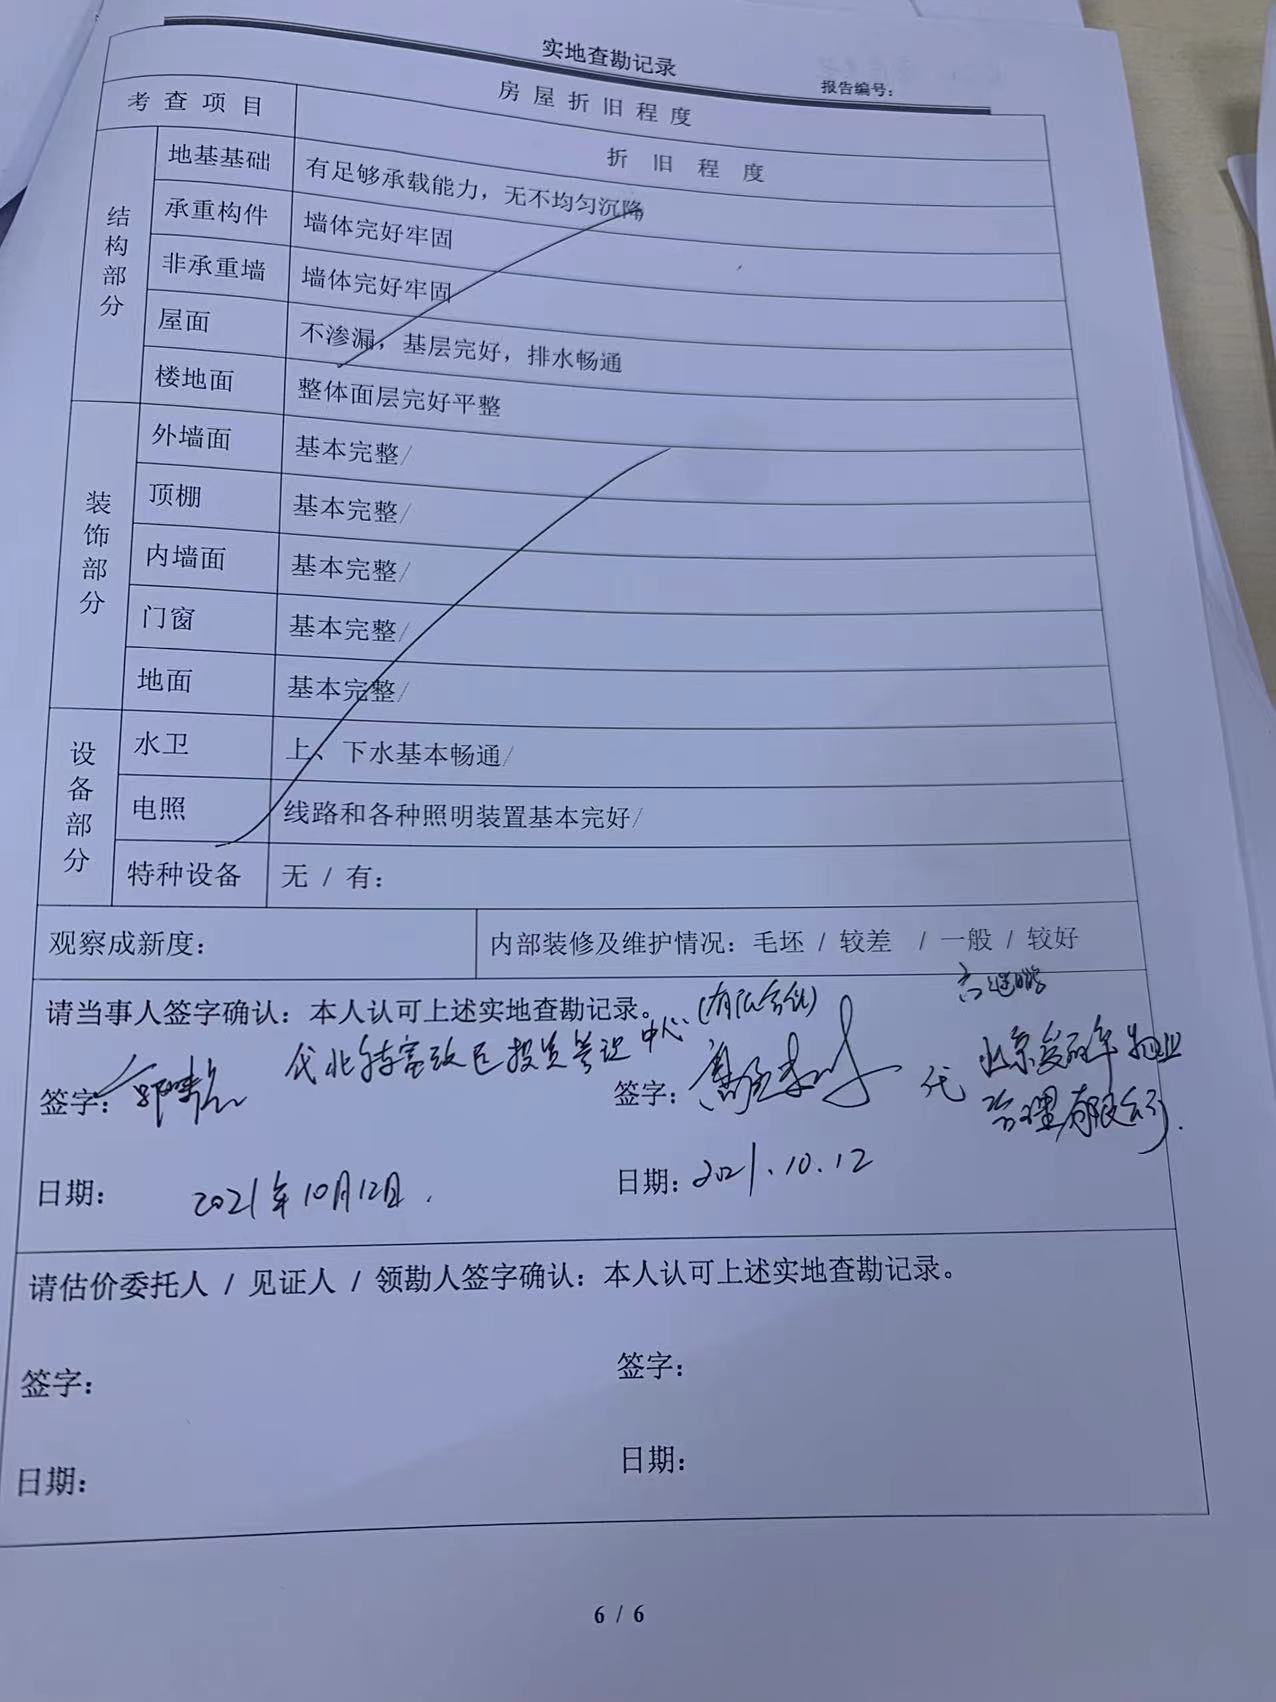 实地查勘记录
报告编号：
房屋折旧程度
考查项目
折旧程度
结构部分
地基基础
有足够承载能力，无不均匀沉降
承重构件
墙体完好牢固
非承重墙
墙体完好牢固
屋面
不渗漏，基层完好，排水畅通
楼地面
整体面层完好平整
装饰部分
外墙面
基本完整/
顶棚
基本完整/
内墙面
基本完整/
门窗
基本完整/
地面
基本完整/
设备部分
水卫
上、下水基本畅通/
电照
线路和各种照明装置基本完好/
特种设备
无 / 有：
观察成新度：
内部装修及维护情况：毛坯 / 较差 / 一般 / 较好
请当事人签字确认：本人认可上述实地查勘记录。
(有限合伙)
投资管理中心
签字：
签字：
代
北京 物业
管理有限公司.
日期：
2021年10月12日.
日期：2021.10.12
请估价委托人 / 见证人 / 领勘人签字确认：本人认可上述实地查勘记录。
签字：
签字：
日期：
日期：
6 / 6